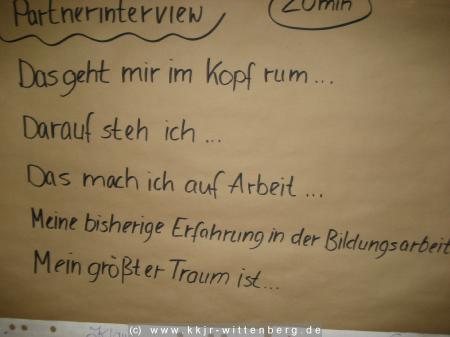 Partnerinterview 20min
Das geht mir im Kopf rum...
Darauf steh ich...
Das mach ich auf Arbeit...
Meine bisherige Erfahrung in der Bildungsarbeit
Mein größter Traum ist...
(c) www.kkjr-wittenberg.de